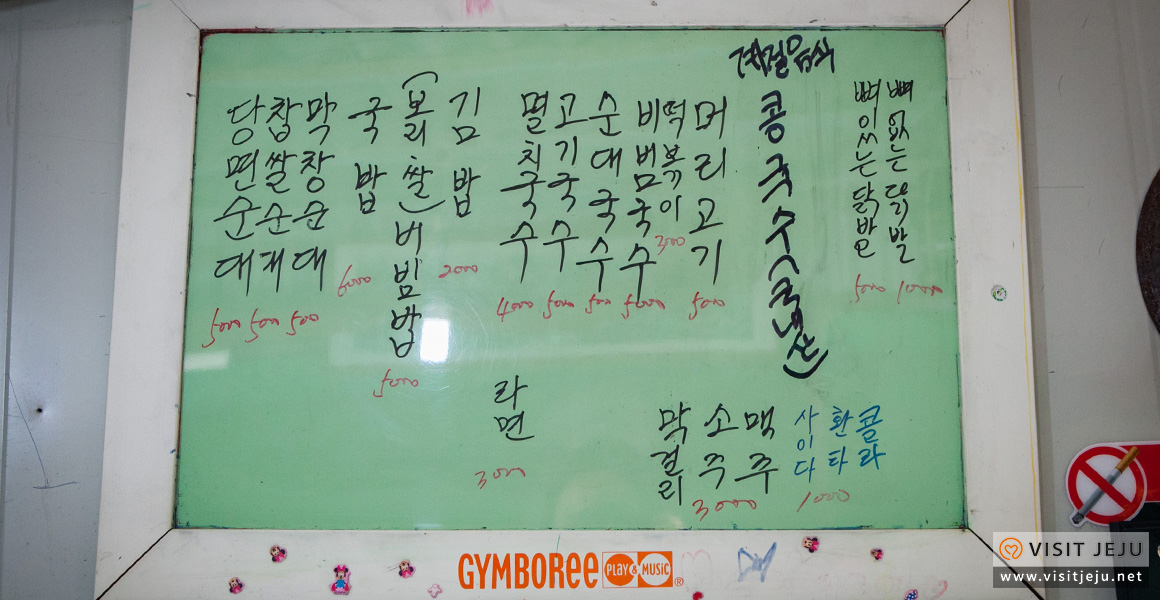 계절음식
당면순대
5000
찹쌀순대
5000
막창순대
500
국밥
6000
(보리쌀)비빔밥
5000
김밥
2000
멸치국수
4000
고기국수
5000
순대국수
500
비빔국수
5000
떡볶이
300
머리고기
500
콩국수(국내산)
뼈있는닭발
5000
뼈없는닭발
10000
라면
3000
막걸리
소주
맥주
3000
사이다
환타
콜라
1000
GYMBOREE PLAY & MUSIC ®
VISIT JEJU
www.visitjeju.net